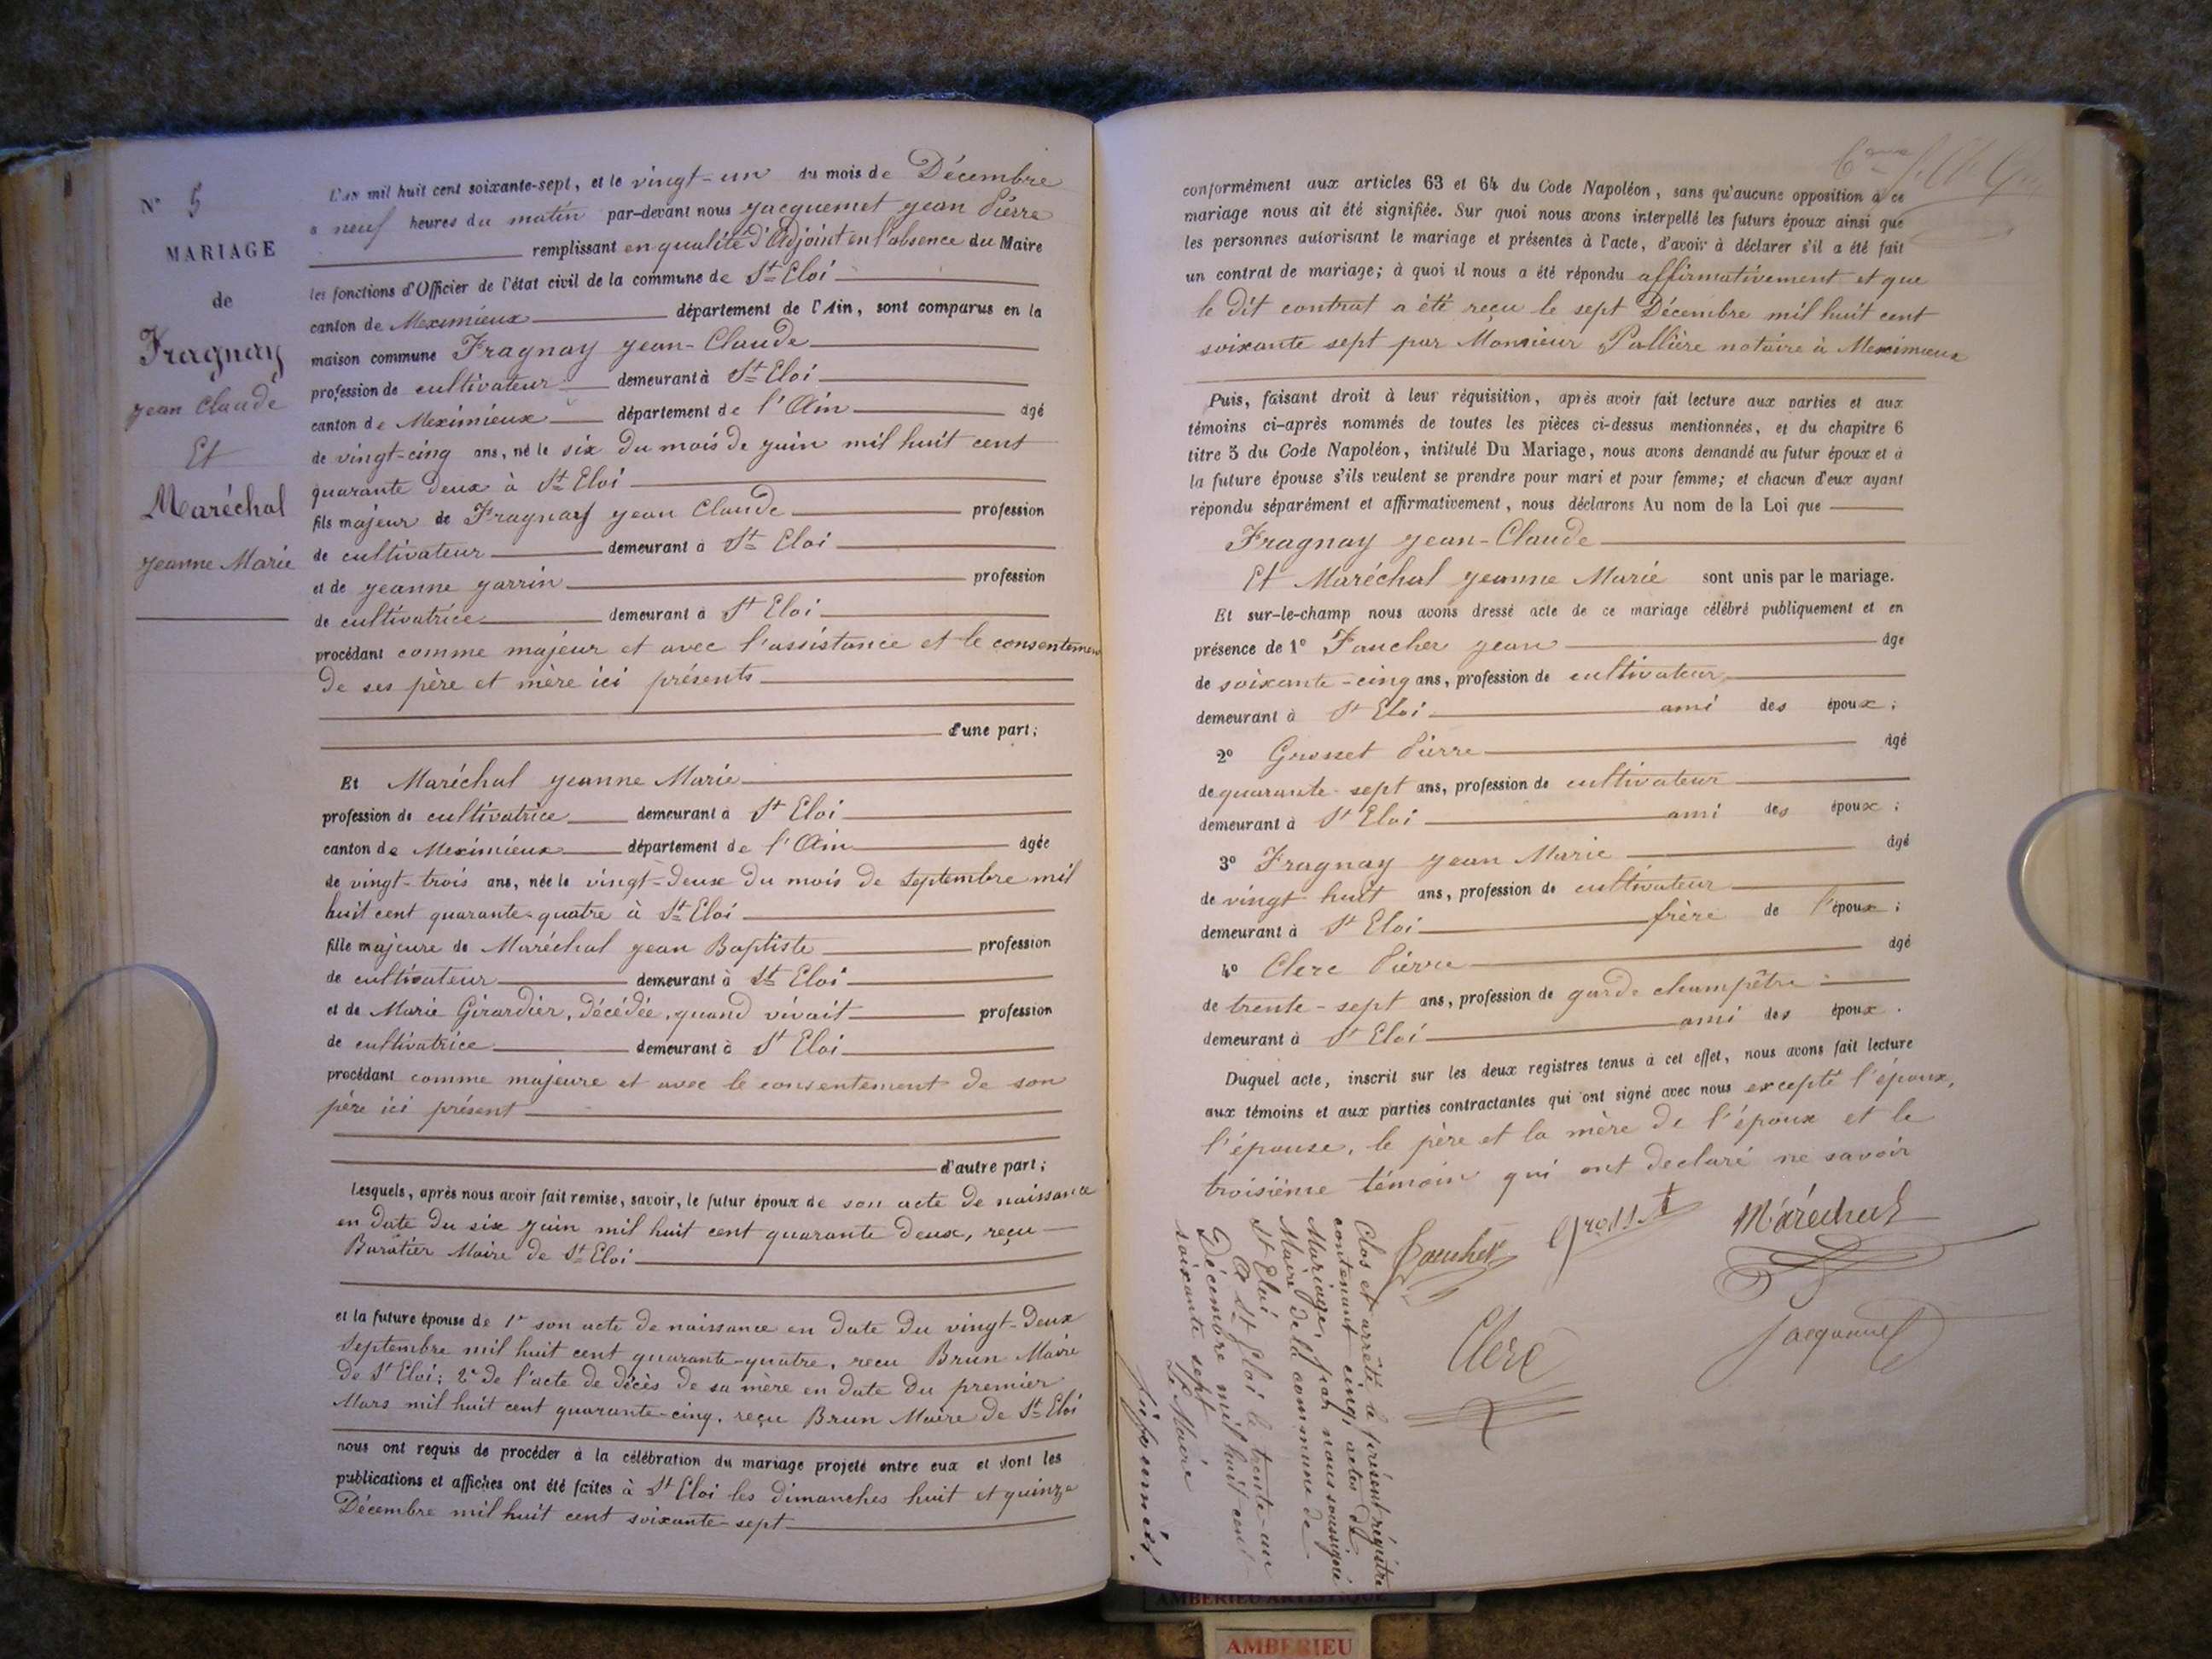 N° 5
MARIAGE
de
Fragnay
Jean Claude
Et
Maréchal
Jeanne Marie
L'an mil huit cent soixante-sept, et le vingt-un du mois de Décembre
à neuf heures du matin par-devant nous Jacquemet Jean Pierre
remplissant en qualité d'Adjoint en l'absence du Maire
les fonctions d'Officier de l'état civil de la commune de St Eloi
canton de Meximieux département de l'Ain, sont comparus en la
maison commune Fragnay Jean-Claude
profession de cultivateur demeurant à St Eloi
canton de Meximieux département de l'Ain âgé
de vingt-cinq ans, né le six du mois de Juin mil huit cent
quarante deux à St Eloi
fils majeur de Fragnay Jean Claude profession
de cultivateur demeurant à St Eloi
et de Jeanne Jarrin profession
de cultivatrice demeurant à St Eloi
procédant comme majeur et avec l'assistance et le consentemen
de ses père et mère ici présents
d'une part;
Et Maréchal Jeanne Marie
profession de cultivatrice demeurant à St Eloi
canton de Meximieux département de l'Ain âgée
de vingt-trois ans, née le vingt-deux du mois de Septembre mil
huit cent quarante-quatre à St Eloi
fille majeure de Maréchal Jean Baptiste profession
de cultivateur demeurant à St Eloi
et de Marie Girardier, décédée, quand vivait profession
de cultivatrice demeurant à St Eloi
procédant comme majeure et avec le consentement de son
père ici présent
d'autre part;
Lesquels, après nous avoir fait remise, savoir, le futur époux de son acte de naissance
en date du six Juin mil huit cent quarante deux, reçu
Baratier Maire de St Eloi
et la future épouse de 1° son acte de naissance en date du vingt-deux
Septembre mil huit cent quarante-quatre, reçu Brun Maire
de St Eloi; 2° de l'acte de décès de sa mère en date du premier
Mars mil huit cent quarante-cinq, reçu Brun Maire de St Eloi
nous ont requis de procéder à la célébration du mariage projeté entre eux et dont les
publications et affiches ont été faites à St Eloi les dimanches huit et quinze
Décembre mil huit cent soixante-sept
conformément aux articles 63 et 64 du Code Napoléon, sans qu'aucune opposition à ce
mariage nous ait été signifiée. Sur quoi nous avons interpellé les futurs époux ainsi que
les personnes autorisant le mariage et présentes à l'acte, d'avoir à déclarer s'il a été fait
un contrat de mariage; à quoi il nous a été répondu affirmativement et que
le dit contrat a été reçu le sept Décembre mil huit cent
soixante sept par Monsieur Pallière notaire à Meximieux
Puis, faisant droit à leur réquisition, après avoir fait lecture aux parties et aux
témoins ci-après nommés de toutes les pièces ci-dessus mentionnées, et du chapitre 6
titre 5 du Code Napoléon, intitulé Du Mariage, nous avons demandé au futur époux et à
la future épouse s'ils veulent se prendre pour mari et pour femme; et chacun d'eux ayant
répondu séparément et affirmativement, nous déclarons Au nom de la Loi que
Fragnay Jean-Claude
Et Maréchal Jeanne Marie sont unis par le mariage.
Et sur-le-champ nous avons dressé acte de ce mariage célébré publiquement et en
présence de 1° Faucher Jean âgé
de soixante-cinq ans, profession de cultivateur
demeurant à St Eloi ami des époux;
2° Grosset Pierre âgé
de quarante-sept ans, profession de cultivateur
demeurant à St Eloi ami des époux;
3° Fragnay Jean Marie âgé
de vingt huit ans, profession de cultivateur
demeurant à St Eloi frère de l'époux;
4° Clerc Pierre âgé
de trente-sept ans, profession de garde champêtre
demeurant à St Eloi ami des époux.
Duquel acte, inscrit sur les deux registres tenus à cet effet, nous avons fait lecture
aux témoins et aux parties contractantes qui ont signé avec nous excepté l'époux,
l'épouse, le père et la mère de l'époux et le
troisième témoin qui ont déclaré ne savoir
Faucher Grosset Maréchal
Clerc Jacquemet
Clos et arrêté le présent régistre
contenant cinq actes de
Mariage, par nous soussigné
Maire de la commune de
St Eloi
A St Eloi le trente-un
Décembre mil huit cent
soixante sept
Le Maire
AMBERIEU ARTISTIQUE
AMBERIEU